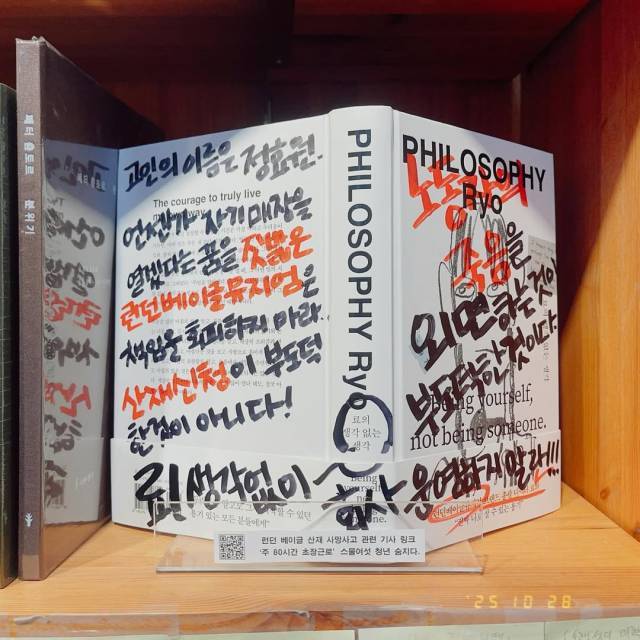 페터 춤토르 분위기
고인의 이름은 정효원.
The courage to truly live
언젠가 자기 매장을
열겠다는 꿈을 짓밟은
런던베이글뮤지엄은
책임을 회피하지 마라.
산재신청이 부도덕
한 것이 아니다!
료! 생각없이
회사 운영하지 말라!!!
PHILOSOPHY Ryo
료의
생각 없는
생각
Being
yourself,
not being
someone.
PHILOSOPHY
Ryo
노동자의
죽음을
외면하는 것이
부도덕한 것이다.
being yourself,
not being someone.
런던 베이글 산재 사망사고 관련 기사 링크
'주 80시간 초장근로' 스물여섯 청년 숨지다.
'25 10 28